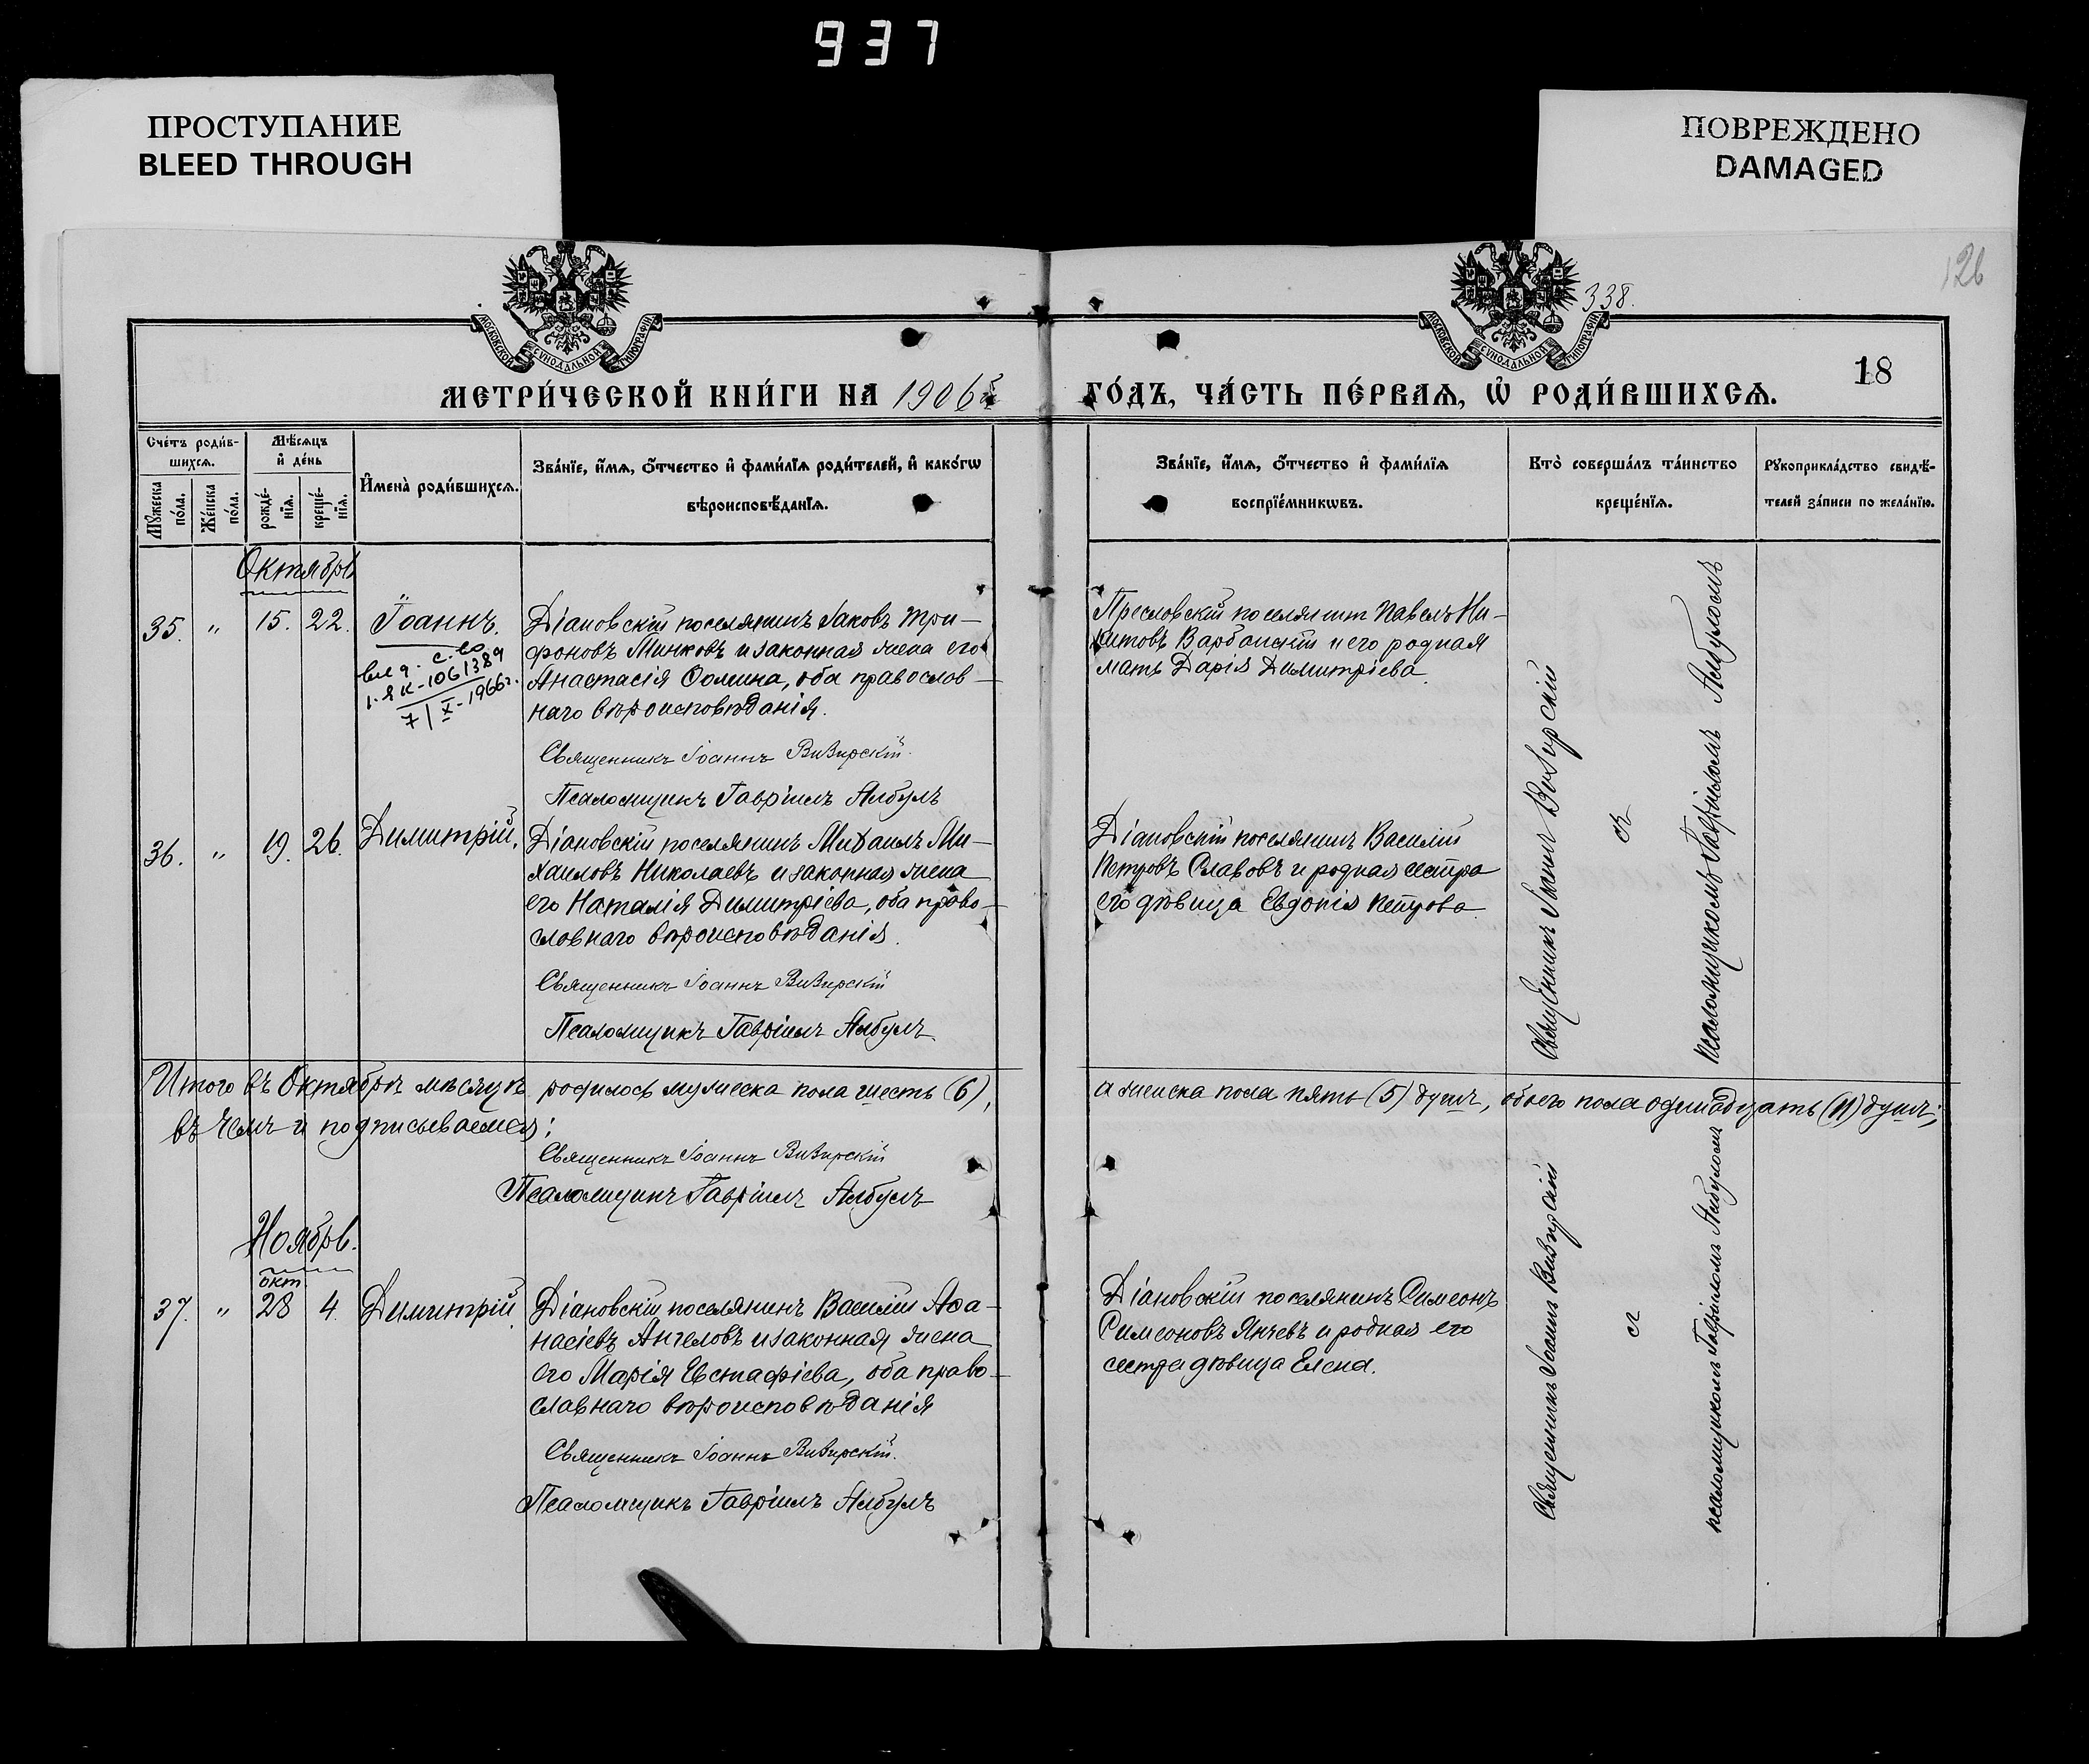 937
ПРОСТУПАНИЕ
BLEED THROUGH
ПОВРЕЖДЕНО
DAMAGED
126
338.
МОСКОВСКОЙ СѴНОДАЛЬНОЙ ТИПОГРАФІИ
МОСКОВСКОЙ СѴНОДАЛЬНОЙ ТИПОГРАФІИ
18
МЕТРИ́ЧЕСКОЙ КНИ́ГИ НА 1906й ГО́ДЪ, ЧА́СТЬ ПЕ́РВАѦ, Ѽ РОДИ́ВШИХСѦ.
Сче́тъ роди́в-
шихсѧ.
Мѣ́сѧцъ
и҆ де́нь
Мꙋ́жеска
по́ла.
Же́нска
по́ла.
рожде́-
нїѧ.
креще́-
нїѧ.
И҆мена̀ роди́вшихсѧ.
Зва́нїе, и҆́мѧ, ѻ҆́тчество и҆ фами́лїѧ роди́телей, и҆ како́гѡ
вѣроисповѣ́данїѧ.
Зва́нїе, и҆́мѧ, ѻ҆́тчество и҆ фами́лїѧ
воспрїе́мникѡвъ.
Кто̀ соверша́лъ та́инство
креще́нїѧ.
Рꙋкоприкла́дство свидѣ́-
телей за́писи по жела́нїю.
Октябрь
35. " 15. 22. Іоаннъ.
I-ЯК-1061389
7/X-1966г.
Діановскій поселянинъ Іаковъ Три-
фоновъ Минковъ и законная жена его
Анастасія Ѳомина, оба православ-
наго вѣроисповѣданія.
Священникъ Іоаннъ Визирскій.
Псаломщикъ Гавріилъ Албулъ
Пресловскій поселянинъ Павелъ Ни-
китовъ Варбанскій и его родная
мать Дарія Димитріева.
Священникъ Іоаннъ Визирскій
съ
псаломщикомъ Гавріиломъ Албуломъ
36. " 19. 26. Димитрій.
Діановскій поселянинъ Михаилъ Ми-
хаиловъ Николаевъ и законная жена
его Наталія Димитріева, оба право-
славнаго вѣроисповѣданія.
Священникъ Іоаннъ Визирскій
Псаломщикъ Гавріилъ Албулъ
Діановскій поселянинъ Василій
Петровъ Славовъ и родная сестра
его дѣвица Евдокія Петрова.
Итого въ Октябрѣ мѣсяцѣ родилось мужеска пола шесть (6), а женска пола пять (5) душъ, обоего пола одиннадцать (11) душъ;
въ чемъ и подписываемся;
Священникъ Іоаннъ Визирскій
Псаломщикъ Гавріилъ Албулъ
Ноябрь.
окт.
37. " 28 4. Димитрій.
Діановскій поселянинъ Василій Аѳа-
насіевъ Ангеловъ и законная жена
его Марія Евстафіева, оба право-
славнаго вѣроисповѣданія
Священникъ Іоаннъ Визирскій.
Псаломщикъ Гавріилъ Албулъ
Діановскій поселянинъ Симеонъ
Симеоновъ Янчевъ и родная его
сестра дѣвица Елена.
Священникъ Іоаннъ Визирскій
съ
псаломщикомъ Гавріиломъ Албуломъ